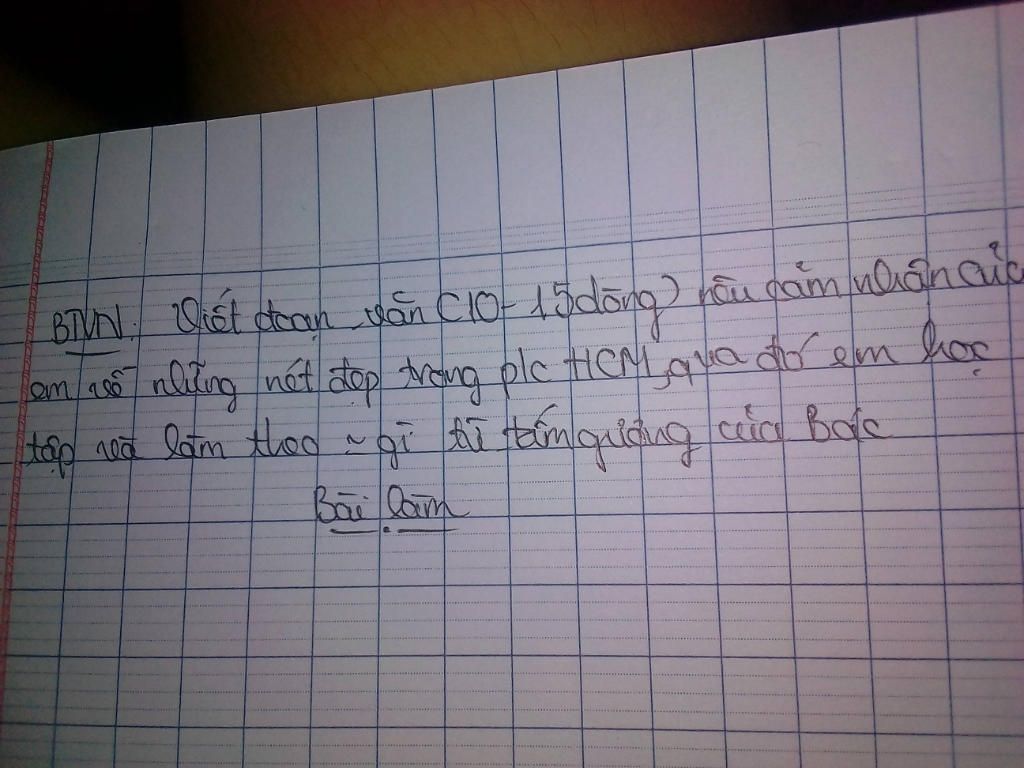 BTVN: Viết đoạn văn (10-15 dòng) nêu cảm nhận của
em về những nét đẹp trong p/c HCM, qua đó em học
tập và làm theo ~ gì từ tấm gương của Bác
Bài làm